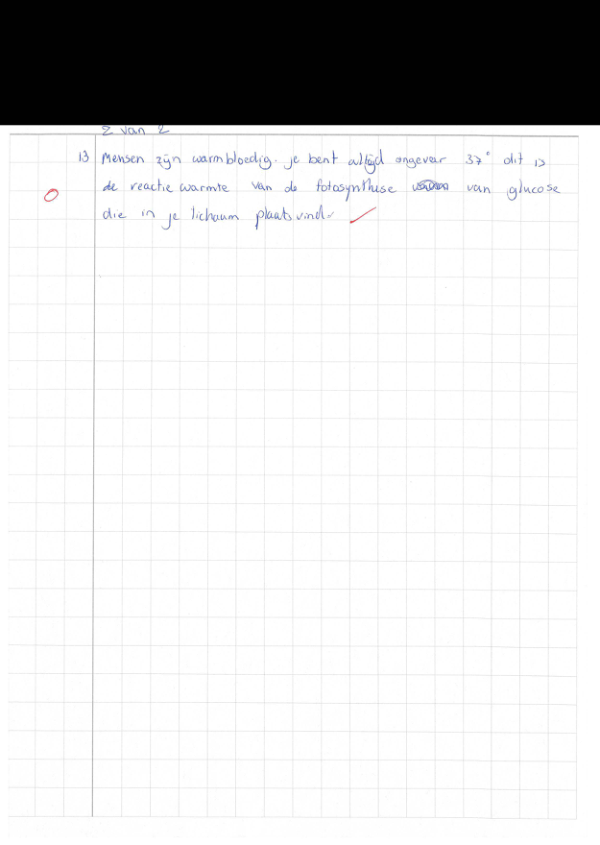 2 van 2
13 Mensen zijn warmbloedig. je bent altijd ongeveer 37° dit is
de reactie warmte van de fotosynthese van glucose
die in je lichaam plaats vind.